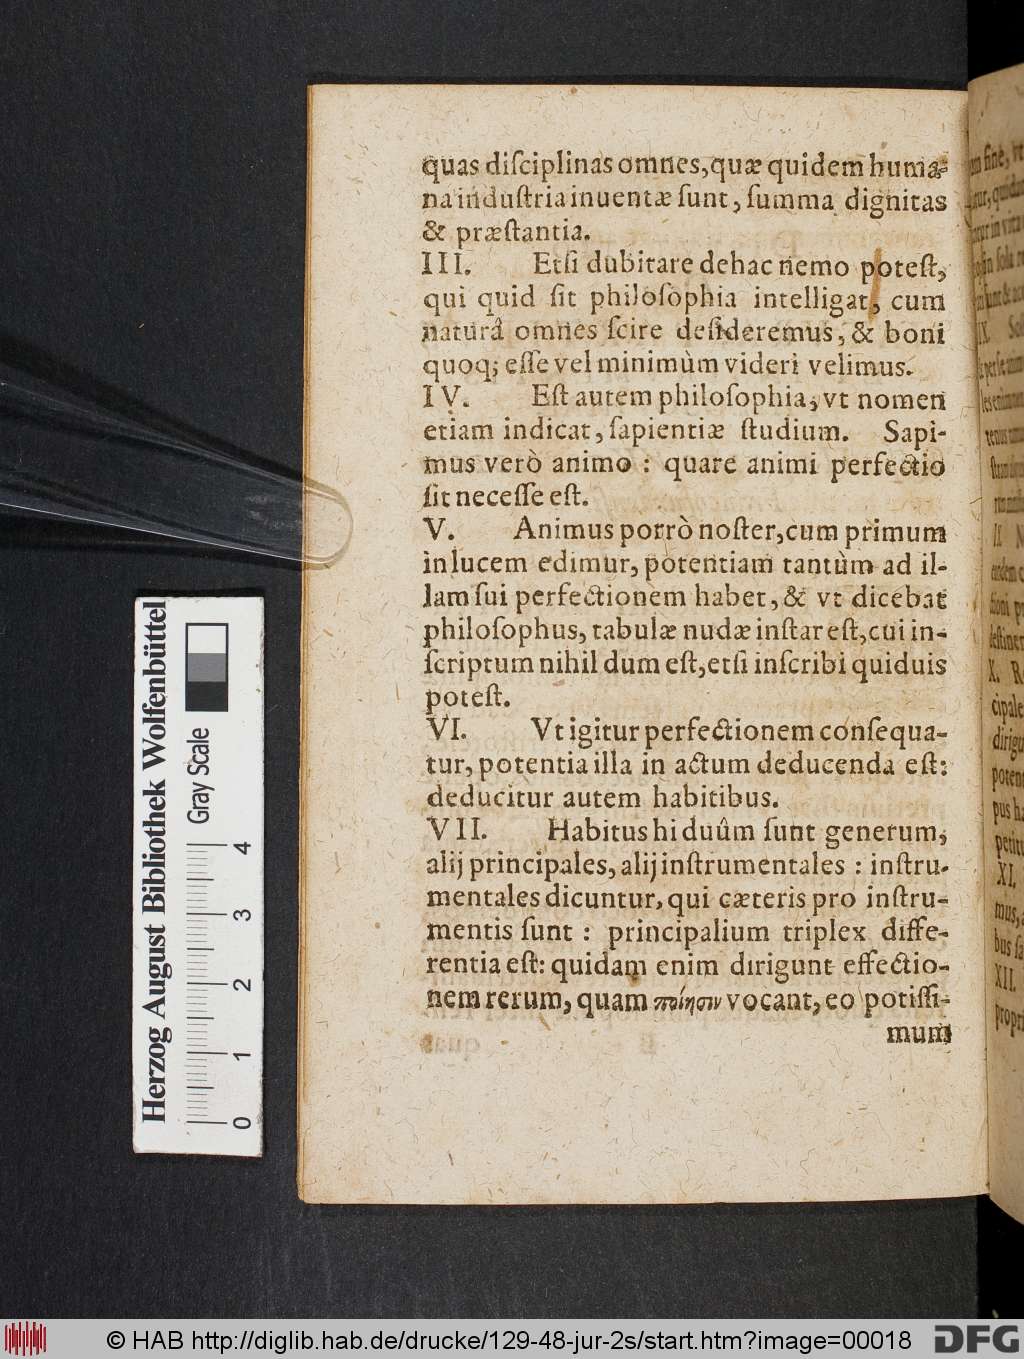 quas diſciplinas omnes, quæ quidem huma-
na induſtria inuentæ ſunt, ſumma dignitas
& præſtantia.
III. Etſi dubitare dehac nemo poteſt,
qui quid ſit philoſophia intelligat, cum
naturâ omnes ſcire deſideremus, & boni
quoq; eſſe vel minimùm videri velimus.
IV. Eſt autem philoſophia, vt nomen
etiam indicat, ſapientiæ ſtudium. Sapi-
mus verò animo : quare animi perfectio
ſit neceſſe eſt.
V. Animus porrò noſter, cum primum
in lucem edimur, potentiam tantùm ad il-
lam ſui perfectionem habet, & vt dicebat
philoſophus, tabulæ nudæ inſtar eſt, cui in-
ſcriptum nihil dum eſt, etſi inſcribi quiduis
poteſt.
VI. Vt igitur perfectionem conſequa-
tur, potentia illa in actum deducenda eſt:
deducitur autem habitibus.
VII. Habitus hi duûm ſunt generum,
alij principales, alij inſtrumentales : inſtru-
mentales dicuntur, qui cæteris pro inſtru-
mentis ſunt : principalium triplex diffe-
rentia eſt: quidam enim dirigunt effectio-
nem rerum, quam ποίησιν vocant, eo potiſſi-
mum
Herzog August Bibliothek Wolfenbüttel
Gray Scale
0 1 2 3 4
© HAB http://diglib.hab.de/drucke/129-48-jur-2s/start.htm?image=00018
DFG